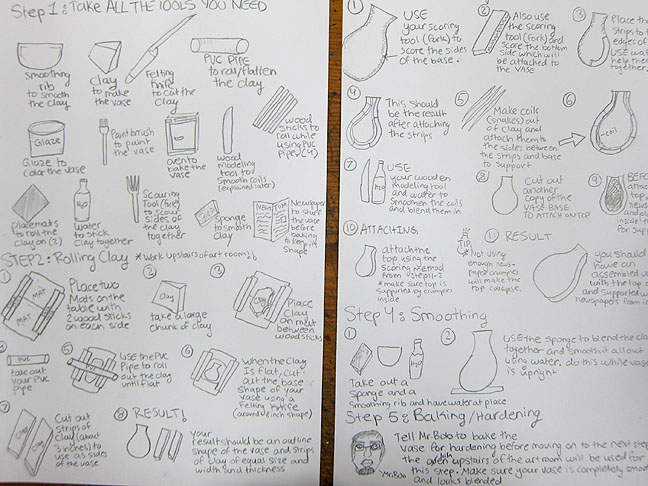 Step 1: Take ALL THE TOOLS YOU NEED
Smoothing
rib
to smooth
the clay
Clay
to make
the vase
Felting
Knife
to cut the
Clay
PVC PIPE
to roll/flatten
the clay
Glaze
Glaze to
color the vase
Paint brush
to paint
the vase
oven to
bake the
vase
wood
modeling
tool to
smooth coils
(explained later)
wood
sticks to
roll while
using PVC
Pipe (4)
Placemats
to roll the
clay on (2)
H2O
water
to stick
clay together
Scouring
Tool (fork)
to scour
sides of
the clay
together
Sponge
to smooth
clay
Newspaper
to stuff
the vase
before
baking to
keep it
shape
STEP 2: Rolling Clay * Work Upstairs of art room!!
1
MAT
MAT
Place two
Mats on the
table with
2 wood sticks
on each side
2
Clay
take a large
chunk of clay
3
Place
Clay
on mat
between
wood sticks
4
PVC
take out
your PVC
pipe
5
USE the PVC
Pipe to roll
out the clay
until flat
6
when the Clay
IS flat, cut
out the base
shape of your
vase using a
Felting Knife
7
Cut out
strips of
Clay (about
3 inches) to
use as sides
of the vase
8 RESULT!
Your
result should be an outline
shape of the vase and strips
of clay of equal size and
width and thickness
1
USE
your scoring
tool (fork) to
score the sides
of the base.
2
Also use
the scoring
tool (fork) and
score the bottom
side which will
be attached to
the vase
3
Place the
strips to t
edges of
use wate
help them
together.
4
This should
be the result
after attaching
the strips
5
Make coils
(snakes) out
of clay and
attach them to
the sides between
the strips and base
to support
6
coil
7
H2O
USE
your wooden
modeling tool
and water to
smoothen the coils
and blend them in
8
Cut out
another
copy of the
VASE BASE
TO ATTACH ON TOP
9
BEFO
attac
top
news
and
inside t
for sup
10 ATTACHING
attach the
top using the
scoring method
from steps 1-2
* make sure top
is supported by crumples
inside
TIP
Not using
enough news-
paper crumples
will make the
top collapse.
11 RESULT
you should
have an
assembled v
with the top
and supported w
newspapers from i
Step 4: Smoothing
1
Take out a
sponge and a
Smoothing rib and have water at place
2
USE the sponge to blend the cla
together and smooth it all out
using water. do this while vase
is upright
Step 5: Baking/Hardening
Mr.Bob
Tell Mr.Bob to bake the
vase for hardening before moving on to the next step
the oven upstairs of the artroom will be used for
this step. Make sure your vase is completely smoo
and looks blended